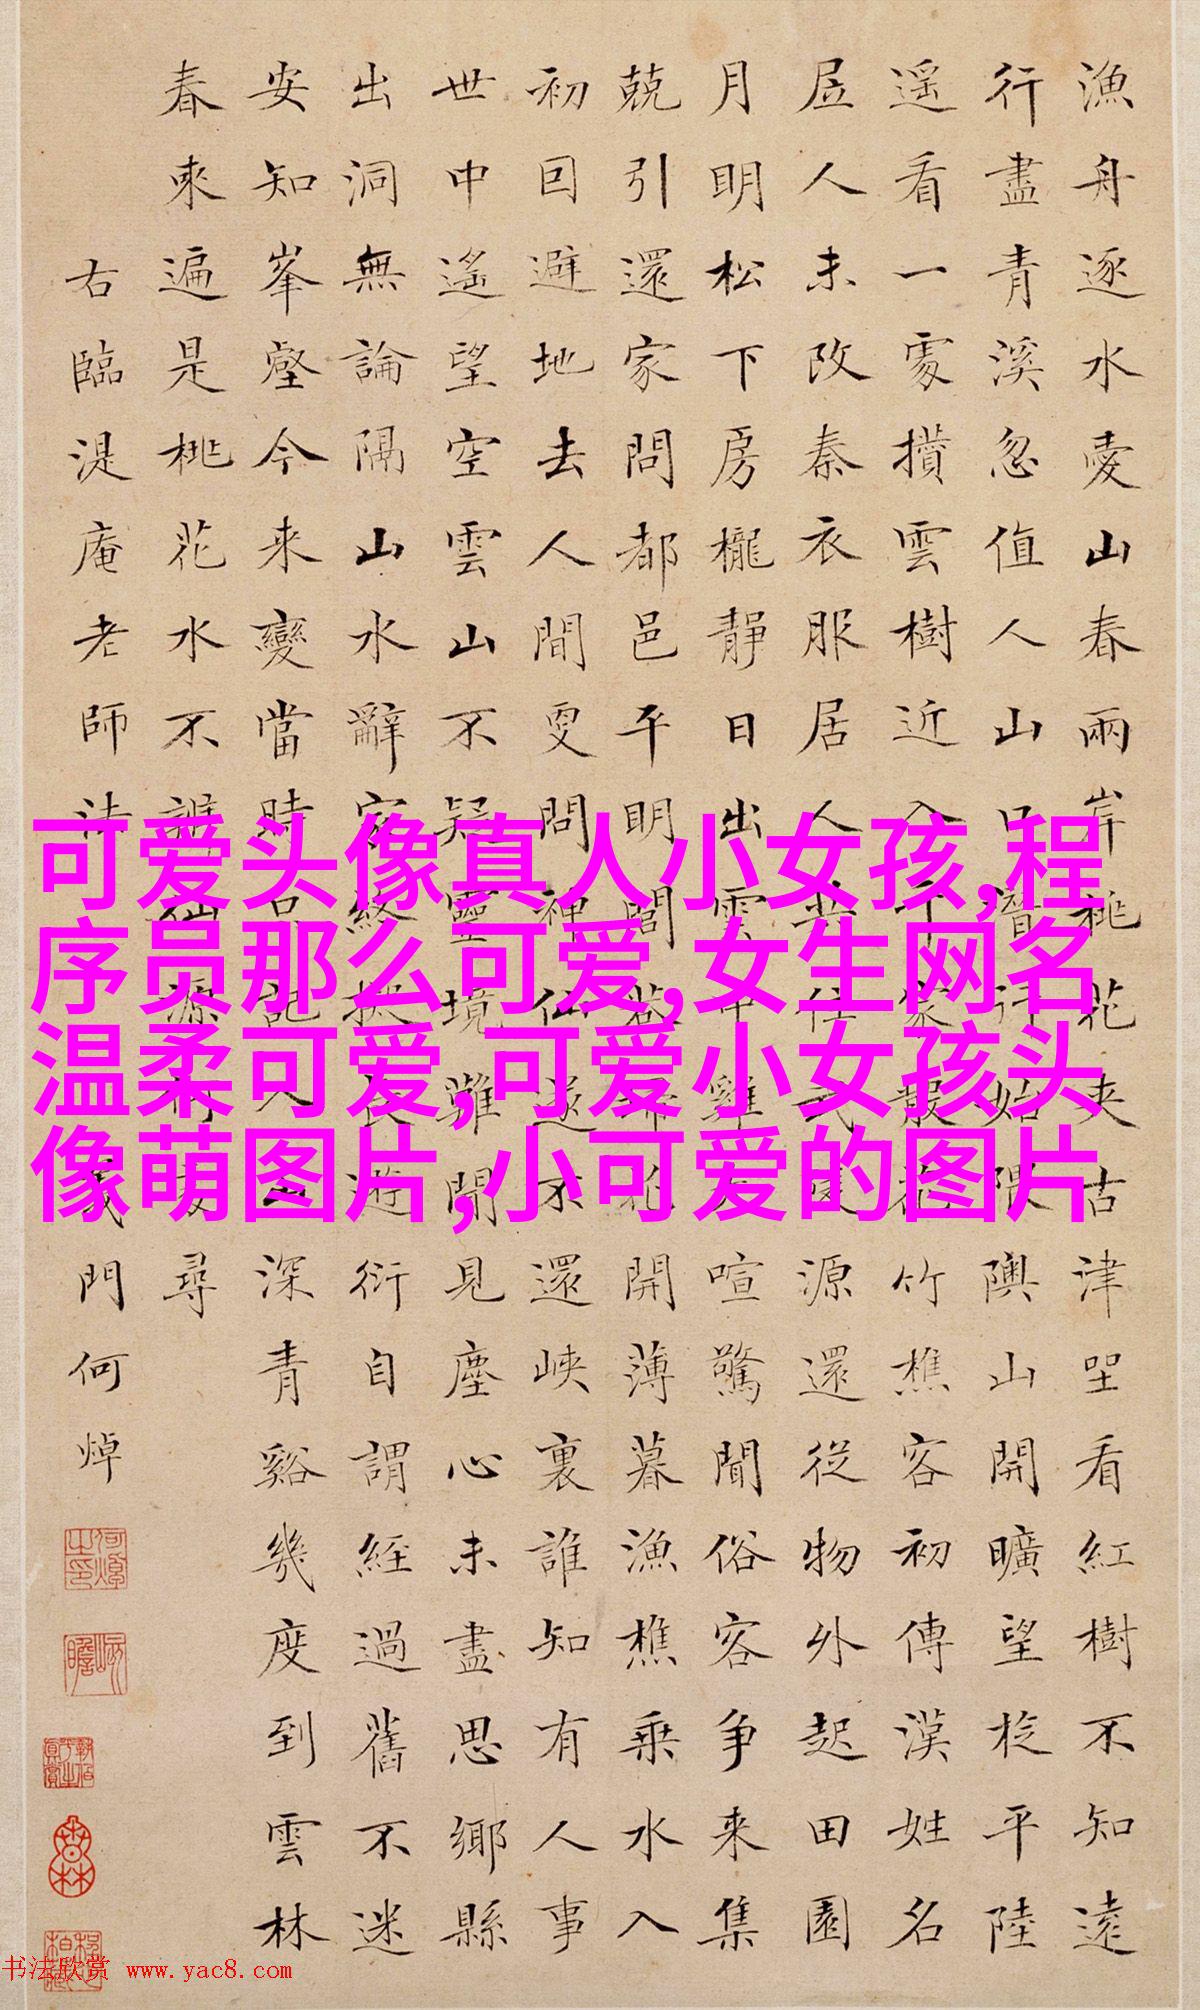 漁舟逐水愛山春兩岸桃花夾古津坐看紅樹不知遠
行盡青溪忽值人山口潛行始隈隩山開曠望旋平陸
遥看一處攢雲樹近入千家散花竹樵客初傳漢姓名
居人未改秦衣服居人共住武陵源還從物外起田園
月明松下房櫳靜日出雲中雞犬喧驚聞俗客争來集
競引還家問都邑平明閭巷掃花開薄暮漁樵乘水入
初因避地去人間更問神仙遂不還峽裏誰知有人事
世中遙望空雲山不疑靈境難聞見塵心未盡思鄉縣
出洞無論隔山水辭家終擬長遊衍自謂經過舊不迷
安知峯壑今来變當時只記入山深青谿幾度到雲林
春來遍是桃花水不辨仙源何處尋
右臨湜庵老師法義門何焯
可爱头像真人小女孩,程
序员那么可爱,女生网名
温柔可爱,可爱小女孩头
像萌图片,小可爱的图片
书法欣赏 www.yac8.com